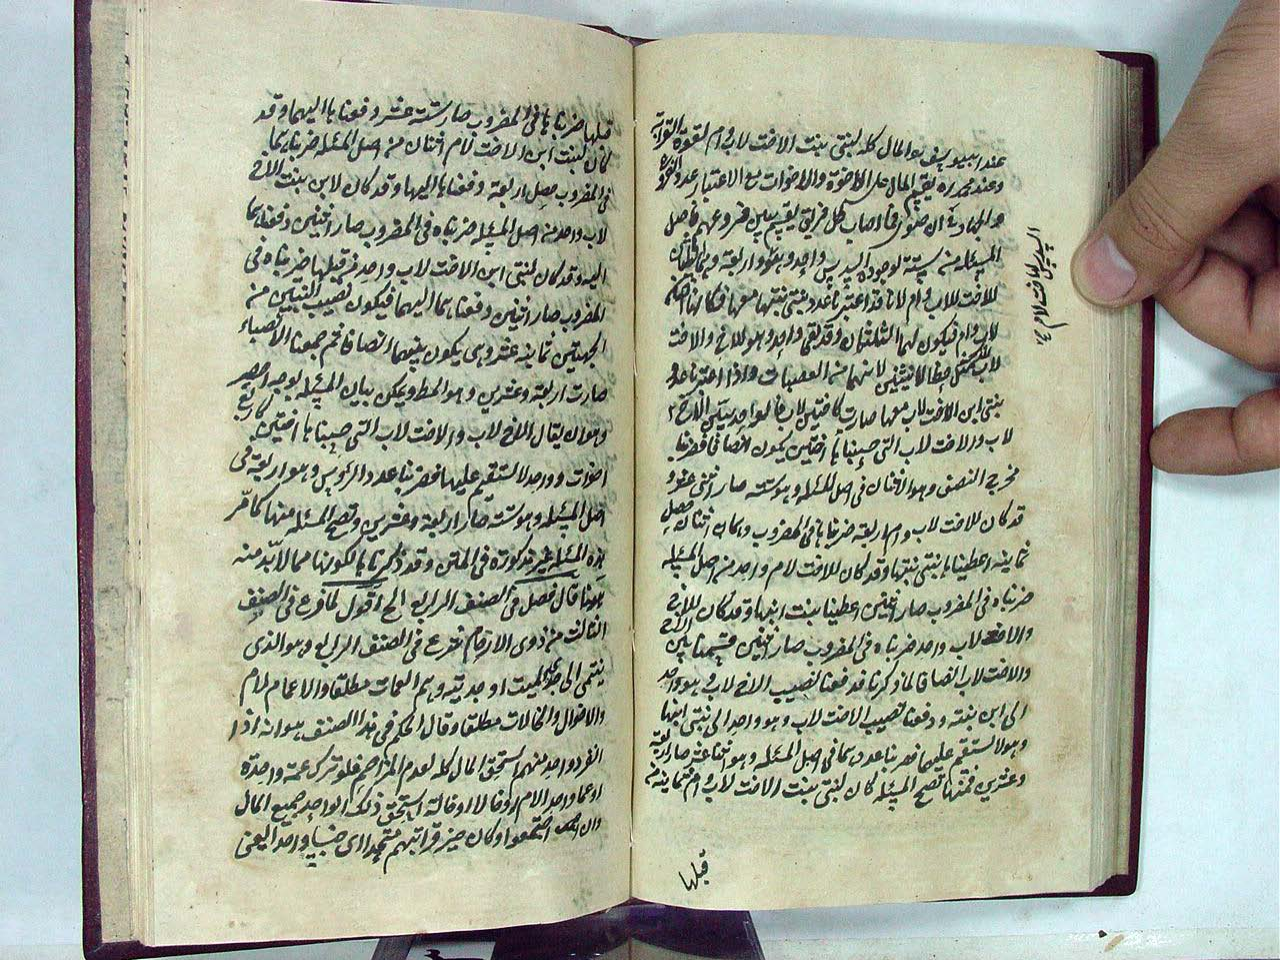 عند ابي يوسف هو المال كله لبنتي بنت الاخت لاب وام لقوة القرابة
وعند محمد ره يقسم المال على الاخوة والاخوات مع الاعتبار عدد الفروع
والجهات في الاصول فما اصاب كل فريق يقسم بين فروعهم فاصل
المسئلة من ستة لوجود السدس واحد وهو واربعة
للاخت لاب وام لانا قد اعتبرنا عدد بنتي بنتها معها فكانها
لاب وام فيكون لهما الثلثان وقد بقي واحد وهو للاخ والاخت
لاب للذكر مثل حظ الانثيين لانهما من العصبات واذا اعتبرنا عدد
بنتي ابن الاخت لاب معها صارت كاختين لاب فالواحد بين الاخ
لاب والاخت لاب التي حسبناها اختين يكون انصافا فضربنا
مخرج النصف وهو اثنان في اصل المسئلة وهو ستة صار اثنى عشر و
قد كان للاخت لاب وام اربعة ضربناها في المضروب وهما اثنان حصل
ثمانية اعطيناها بنتي بنتها وقد كان للاخت لام واحد من اصل المسئلة
ضربناه في المضروب صار اثنين اعطينا بنت ابنها وقد كان للاخ
والاخت لاب واحد ضربناه في المضروب صار اثنين قسمنا بين الاخ
والاخت لاب انصافا لما ذكرنا فدفعنا نصيب الاخ لاب وهو واحد
الى ابن بنته ودفعنا نصيب الاخت لاب وهو واحد الى بنتي ابنها
وهو لا يستقيم عليهما فضربنا عددهما في اصل المسئلة وهو اثنا عشر صار اربعة
وعشرين فمنها تصح المسئلة كان لبنتي بنت الاخت لاب وام ثمانية من
قبلها
قبلها ضربناها في المضروب صار ستة عشر دفعناها اليهما وقد
كان لبنت ابن الاخت لام اثنان من اصل المسئلة ضربناهما
في المضروب حصل اربعة دفعناها اليها وقد كان لابن بنت الاخ
لاب واحد من اصل المسئلة ضربناه في المضروب صار اثنين دفعناهما
اليه وقد كان لبنتي ابن الاخت لاب واحد من قبلها ضربناه في
المضروب صار اثنين دفعناهما اليهما فيكون نصيب البنتين من
الجهتين ثمانية عشر وهي يكون بينهما انصافا ثم جمعنا الانصباء
صارت اربعة وعشرين وهو المط ويمكن بيان المسئلة بوجه اخصر
وهو ان يقال الاخ لاب والاخت لاب التي حسبناها اختين كاربع
اخوات وواحد لا يستقيم عليها فضربنا عدد الرؤس وهو اربعة في
اصل المسئلة وهو ستة صار اربعة وعشرين وتصح المسئلة منها كما مر
هذه المسئلة غير مذكورة في المتن وقد ذكرناها لكونها مما لا بد منه
ههنا قال فصل في الصنف الرابع الخ اقول لما فرغ في الصنف
الثالث من ذوي الارحام شرع في الصنف الرابع وهو الذي
ينتمي الى جد الميت او جدتيه وهم العمات مطلقا والاعمام لام
والاخوال والخالات مطلقا وقال الحكم في هذا الصنف هو انه اذا
انفرد واحد منهم استحق المال كله لعدم المزاحم فلو ترك عمة واحدة
او عما واحد لام او خالا او خالة استحق ذلك الواحد جميع المال
وان اجتمعوا وكان حيز قرابتهم متحدا اى جنسا واحدا يعني